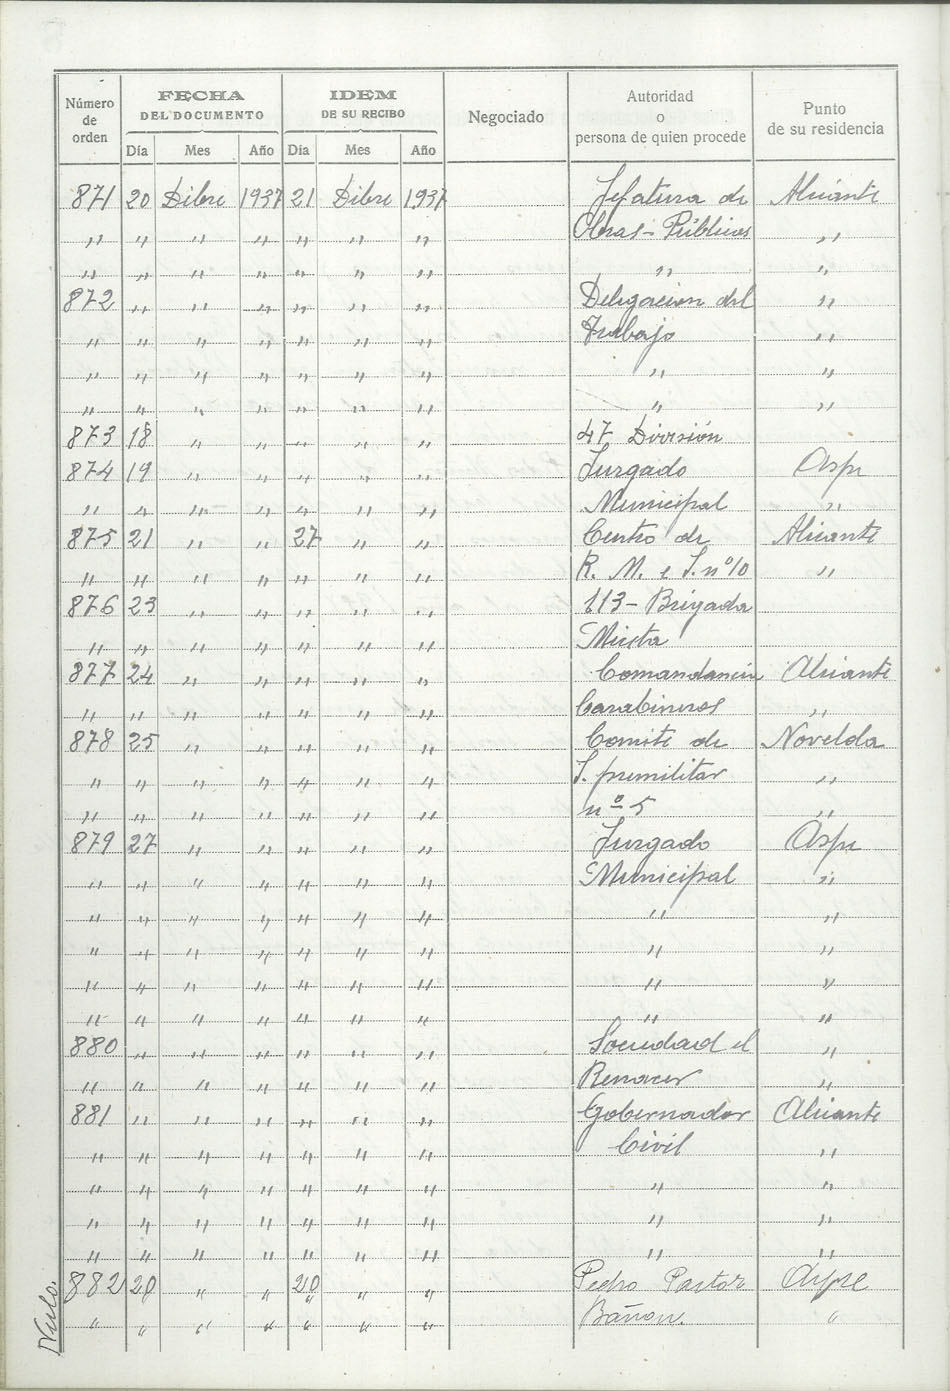 Número de orden | FECHA DEL DOCUMENTO | IDEM DE SU RECIBO | Negociado | Autoridad o persona de quien procede | Punto de su residencia
Día | Mes | Año | Día | Mes | Año
871 20 Dibre 1937 21 Dibre 1937 Jefatura de Alicante
" " " " " " " Obras-Públicas "
" " " " " " " " "
872 " " " " " " Delegacion del "
" " " " " " " Trabajo "
" " " " " " " " "
" " " " " " " " "
873 18 " " " " " 47 División
874 19 " " " " " Jurgado Aspe
" " " " " " " Municipal "
875 21 " " 27 " " Centro de Alicante
" " " " " " " R. M. e I. nº 10 "
876 23 " " " " " 113-Brigada
" " " " " " " Mixta
877 24 " " " " " Comandancia Alicante
" " " " " " " Carabineros "
878 25 " " " " " Comite de Novelda
" " " " " " " I. premilitar "
" " " " " " " nº 5 "
879 27 " " " " " Jurgado Aspe
" " " " " " " Municipal "
" " " " " " " " "
" " " " " " " " "
" " " " " " " " "
" " " " " " " " "
880 " " " " " " Sociedad el "
" " " " " " " Renacer "
881 " " " " " " Gobernador Alicante
" " " " " " " Civil "
" " " " " " " " "
" " " " " " " " "
" " " " " " " " "
Nulo. 882 20 " " 20 " " Pedro Pastor Aspe
" " " " " " " Bañon. "